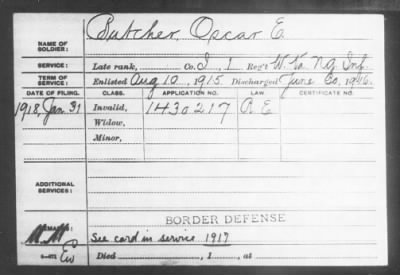 NAME OF SOLDIER: Butcher, Oscar E.
SERVICE: Late rank, Co. I, 1 Reg't W Va N G Inf.
TERM OF SERVICE: Enlisted Aug 10, 1915 Discharged June 30, 1916.
DATE OF FILING. CLASS. APPLICATION NO. LAW CERTIFICATE NO.
1918, Jan. 31 Invalid, 1430217
Widow,
Minor,
ADDITIONAL SERVICES:
BORDER DEFENSE
REMARKS: See card in service 1917
Died , 1 , at